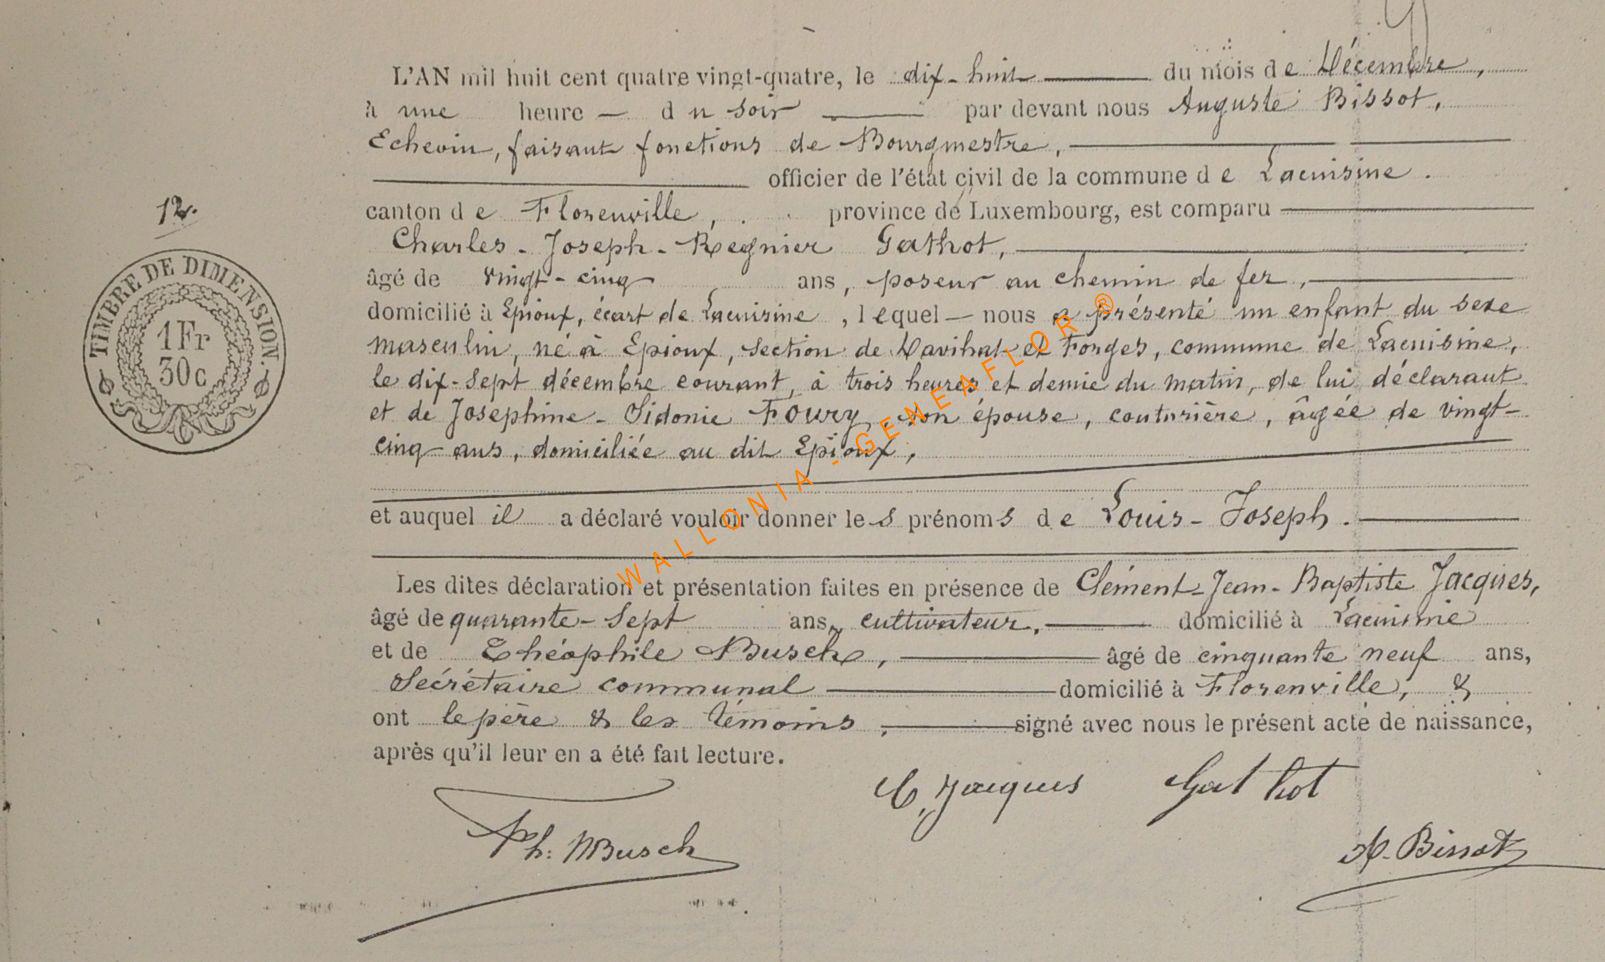 L'AN mil huit cent quatre vingt-quatre, le dix-huit du mois de Décembre,
à une heure — du soir par devant nous Auguste Bissot,
Echevin, faisant fonctions de Bourgmestre,
officier de l'état civil de la commune de Lacuisine.
12.
canton de Florenville, province de Luxembourg, est comparu
Charles-Joseph-Regnier Gathot,
âgé de vingt-cinq ans, poseur au chemin de fer,
TIMBRE DE DIMENSION.
1 Fr
30c
domicilié à Epioux, écart de Lacuisine, lequel — nous a présenté un enfant du sexe
masculin, né à Epioux, section de et Forges, commune de Lacuisine,
le dix-sept décembre courant, à trois heures et demie du matin, de lui déclarant
et de Josephine-Sidonie Foury, son épouse, couturière, âgée de vingt-
cinq ans, domiciliée au dit Epioux,
et auquel il a déclaré vouloir donner les prénoms de Louis-Joseph.
WALLONIA - GENEAFLOR ®
Les dites déclaration et présentation faites en présence de Clément-Jean-Baptiste Jacques,
âgé de quarante-sept ans, cultivateur, domicilié à Lacuisine
et de Théophile Busch, âgé de cinquante neuf ans,
Secrétaire communal domicilié à Florenville, &
ont le père & les témoins, signé avec nous le présent acte de naissance,
après qu'il leur en a été fait lecture.
C. Jacques Gathot
Th: Busch
A. Bissot